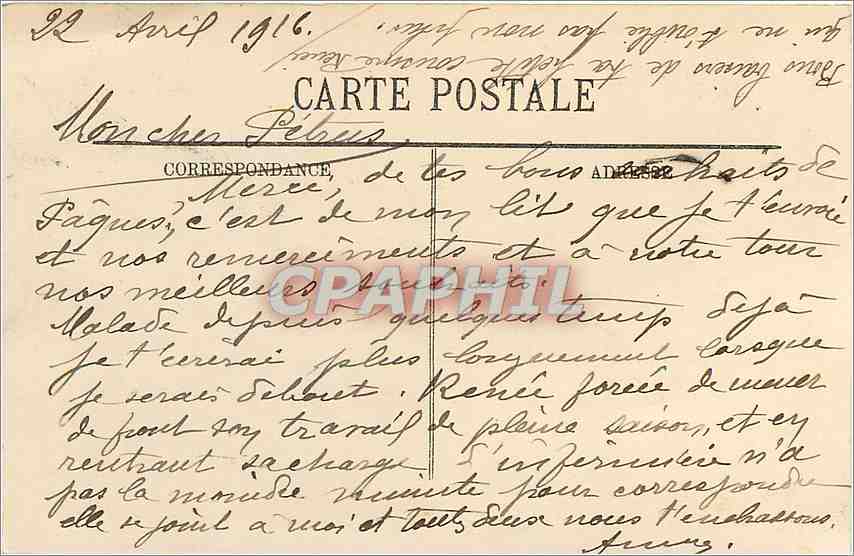 22 Avril 1916.
Bons baisers de ta petite cousine Renée
qui ne t'oublie pas mon petit.
CARTE POSTALE
Mon cher Pétrus,
CORRESPONDANCE
ADRESSE
Merci, de tes bons souhaits de
Pâques, c'est de mon lit que je t'envoie
et nos remerciments et à notre tour
nos meilleurs souhaits.
CPAPHIL
Malade depuis quelques temps déjà
je t'écrirai plus longuement lorsque
je serais debout. Renée forcée de mener
de front son travail de pleine saison, et en
rentrant sa charge d'infirmière n'a
pas la moindre minute pour correspondre
elle se joint à moi et toutes deux nous t'embrassons.